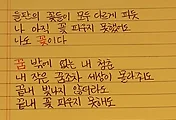 들판의 꽃들이 모두 다르게 피듯
나 아직 꽃 피우지 못했어도
나도 꽃이다
꿈 밖에 없는 내 청춘
내 작은 꿈조차 세상이 몰라줘도
끝내 빛나지 않더라도
끝내 꽃 피우지 못해도